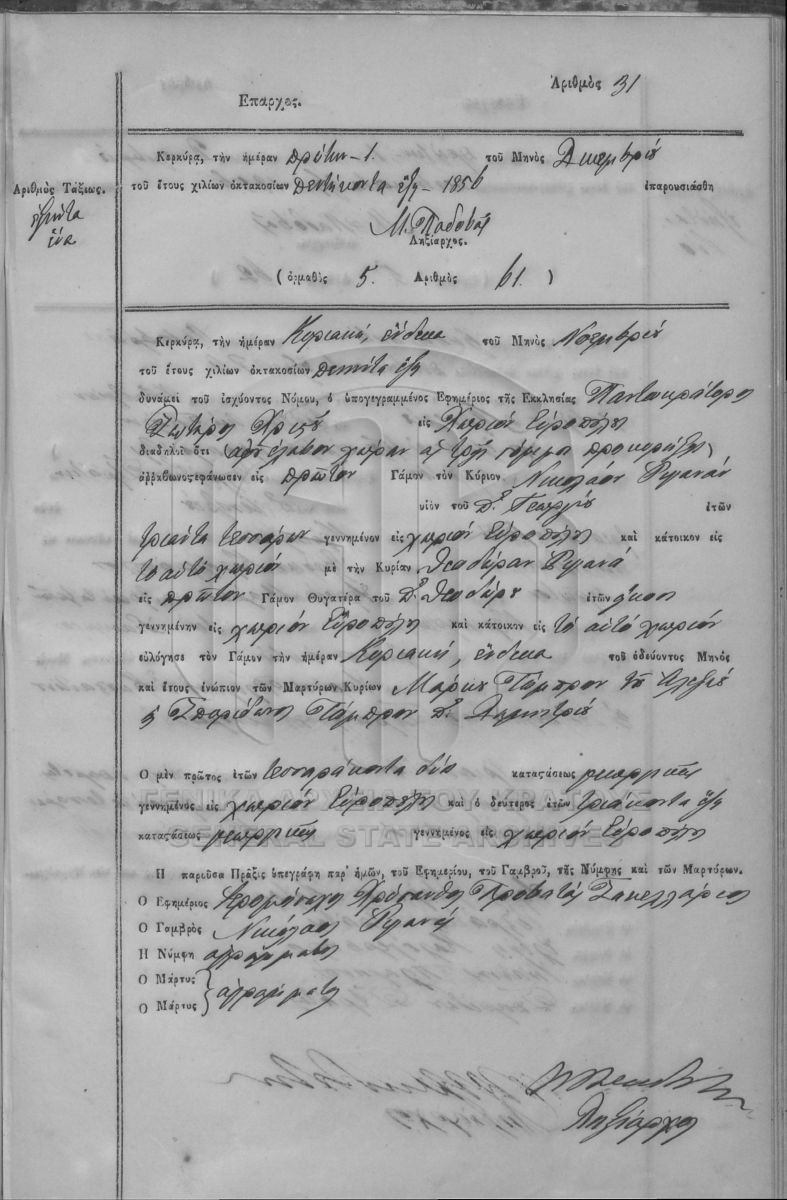 Ἀριθμὸς 31
Ἔπαρχος.
Κερκύρα, τὴν ἡμέραν πρώτην - 1. τοῦ Μηνὸς Δεκεμβρίου
τοῦ ἔτους χιλίων ὀκτακοσίων πεντήκοντα ἕξη - 1856 ἐπαρουσιάσθη
Ἀριθμὸς Τάξεως.
ἑξῆντα
ἕνα
Ληξίαρχος.
(ὁρμαθὸς 5. Ἀριθμὸς 61.)
Κερκύρα, τὴν ἡμέραν Κυριακὴ, ἕνδεκα τοῦ Μηνὸς Νοεμβρίου
τοῦ ἔτους χιλίων ὀκτακοσίων πενῆντα ἕξη
δυνάμει τοῦ ἰσχύοντος Νόμου, ὁ ὑπογεγραμμένος Ἐφημέριος τῆς Ἐκκλησίας Παντοκράτορος
Σωτῆρος Χριστοῦ εἰς Χωρίον Εὐροπούλη
διαδηλοῖ ὅτι (ἀφοῦ ἔλαβον χώραν αἱ τρεῖς νόμιμοι προκηρύξεις)
ἀῤῥαβωνοςεφάνωσεν εἰς πρῶτον Γάμον τὸν Κύριον Νικόλαον
υἱὸν τοῦ Γεωργίου ἐτῶν
τριάντα τεσσάρων γεννημένον εἰς χωρίον Εὐροπούλη καὶ κάτοικον εἰς
τὸ αὐτὸ χωρίον μὲ τὴν Κυρίαν Θεοδώραν
εἰς πρῶτον Γάμον Θυγατέρα τοῦ Θεοδώρου ἐτῶν εἴκοσι
γεννημένην εἰς χωρίον Εὐροπούλη καὶ κάτοικον εἰς τὸ αὐτὸ χωρίον
εὐλόγησε τὸν Γάμον τὴν ἡμέραν Κυριακὴ, ἕνδεκα τοῦ ὁδεύοντος Μηνὸς
καὶ ἔτους ἐνώπιον τῶν Μαρτύρων Κυρίων Μάρκου
Σπυρίδωνος Δημητρίου
Ὁ μὲν πρῶτος ἐτῶν τεσσαράκοντα δύο καταςάσεως γεωργικῆς
γεννημένος εἰς χωρίον Εὐροπούλη καὶ ὁ δεύτερος ἐτῶν τριάκοντα ἕξη
καταςάσεως γεωργικῆς γεννημένος εἰς χωρίον Εὐροπούλη
ΓΕΝΙΚΑ ΑΡΧΕΙΑ ΤΟΥ ΚΡΑΤΟΥΣ
GENERAL STATE ARCHIVES
Ἡ παροῦσα Πρᾶξις ὑπεγράφη παρ' ἡμῶν, τοῦ Ἐφημερίου, τοῦ Γαμβροῦ, τῆς Νύμφης καὶ τῶν Μαρτύρων.
Ὁ Ἐφημέριος Ἱερομόναχος Χρύσανθος Προβατᾶς Σακελλάριος
Ὁ Γαμβρὸς Νικόλαος
Ἡ Νύμφη ἀγράμματος
Ὁ Μάρτυς
Ὁ Μάρτυς ἀγράμματοι
Ληξίαρχος